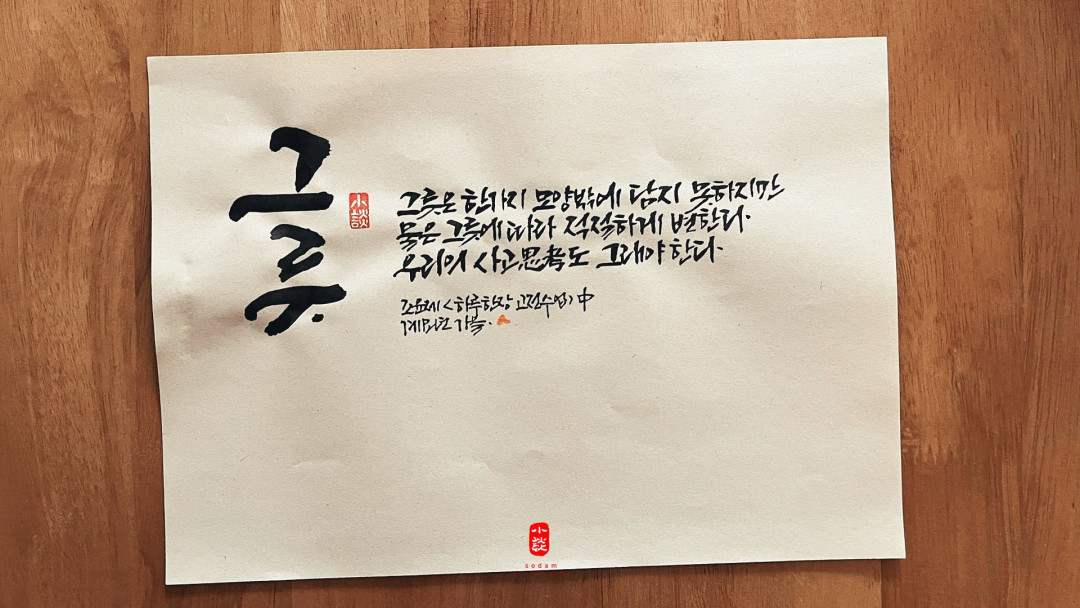 그릇
小談
그릇은 한가지 모양밖에 담지 못하지만
물은 그릇에 따라 적절하게 변한다.
우리의 사고思考도 그래야 한다.
조윤제 <하루 한장 고전수업> 中
계묘년 가을.
小談
sodam